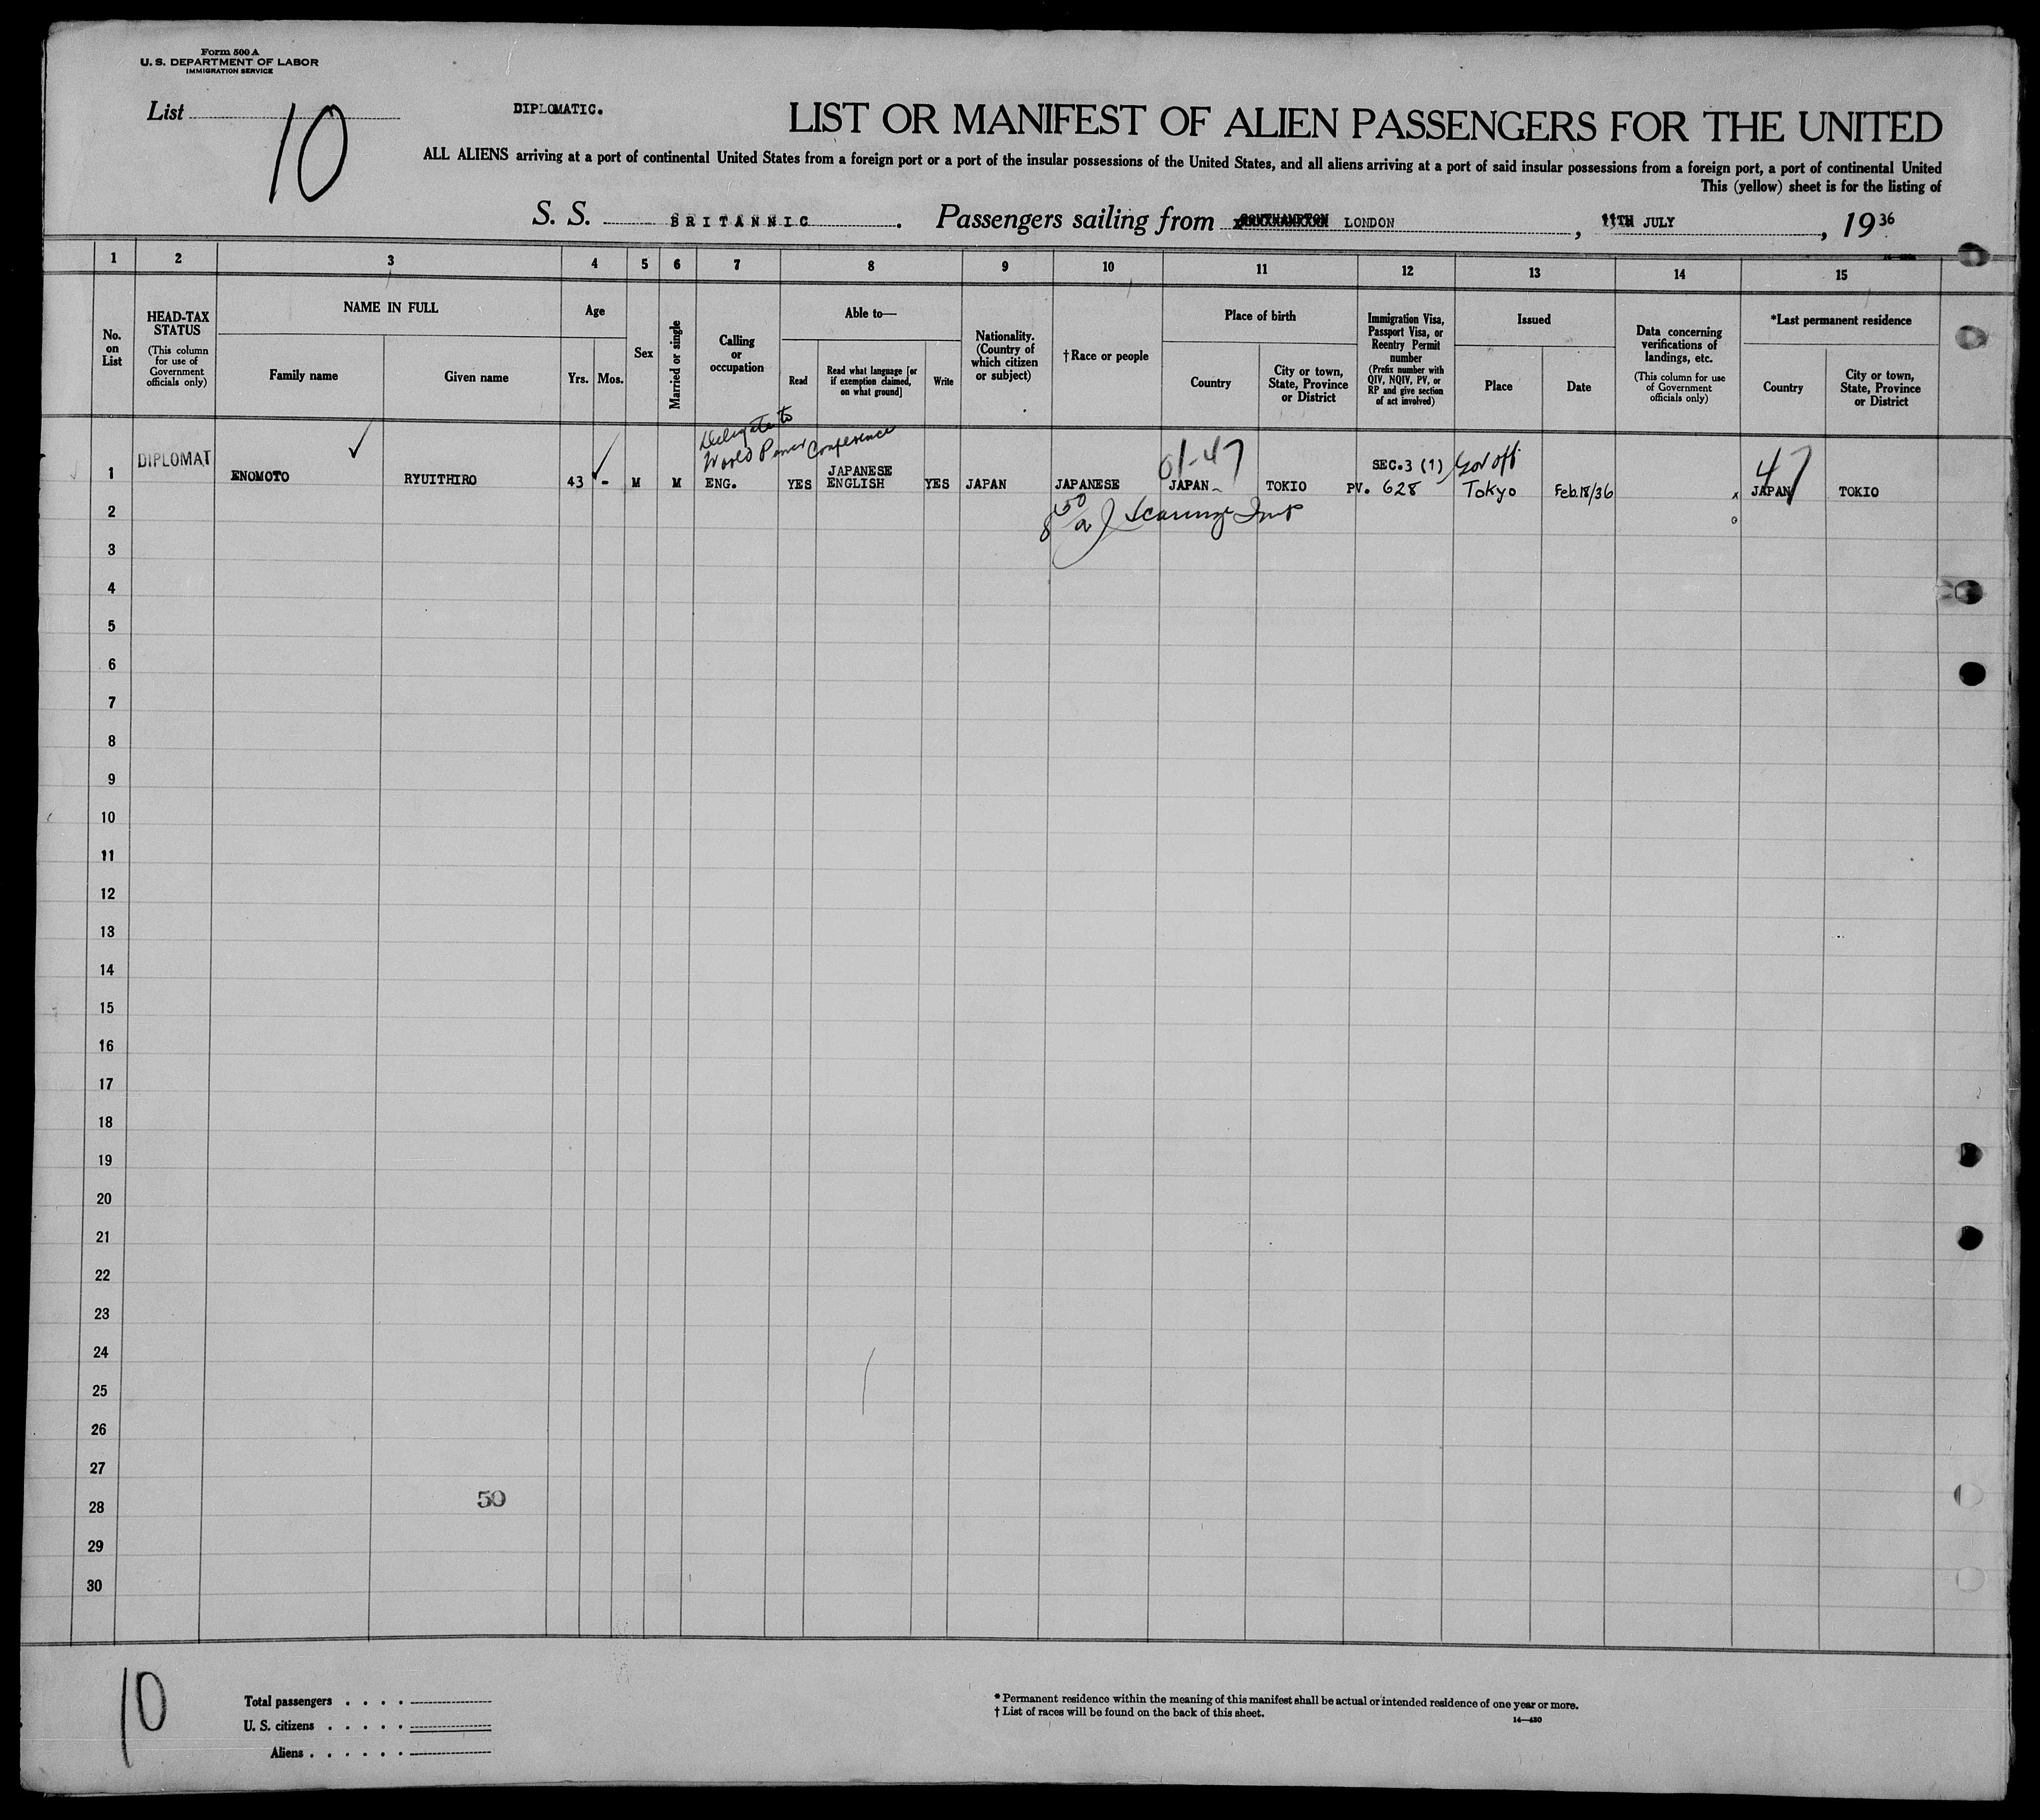 Form 500 A
U. S. DEPARTMENT OF LABOR
IMMIGRATION SERVICE
List 10
DIPLOMATIC.
LIST OR MANIFEST OF ALIEN PASSENGERS FOR THE UNITED
ALL ALIENS arriving at a port of continental United States from a foreign port or a port of the insular possessions of the United States, and all aliens arriving at a port of said insular possessions from a foreign port, a port of continental United
This (yellow) sheet is for the listing of
S. S. BRITANNIC. Passengers sailing from SOUTHAMPTON LONDON, 11TH JULY, 1936
1 2 3 4 5 6 7 8 9 10 11 12 13 14 15
No. on List
HEAD-TAX STATUS
(This column for use of Government officials only)
NAME IN FULL
Family name
Given name
Age
Yrs. Mos.
Sex
Married or single
Calling or occupation
Able to—
Read
Read what language [or if exemption claimed, on what ground]
Write
Nationality. (Country of which citizen or subject)
†Race or people
Place of birth
Country
City or town, State, Province or District
Immigration Visa, Passport Visa, or Reentry Permit number
(Prefix number with QIV, NQIV, PV, or RP and give section of act involved)
Issued
Place
Date
Data concerning verifications of landings, etc.
(This column for use of Government officials only)
*Last permanent residence
Country
City or town, State, Province or District
Delegate to
World Power Conference
DIPLOMAT
01-47
SEC.3 (1) Gov off
47
JAPANESE
1 ENOMOTO RYUITHIRO 43 - M M ENG. YES ENGLISH YES JAPAN JAPANESE JAPAN- TOKIO PV. 628 Tokyo Feb.18/36 x JAPAN TOKIO
2 o
3
4
5
6
7
8
9
10
11
12
13
14
15
16
17
18
19
20
21
22
23
24
25
26
27
28 50
29
30
10
Total passengers . . . .
U. S. citizens . . . . .
Aliens . . . . . .
* Permanent residence within the meaning of this manifest shall be actual or intended residence of one year or more.
† List of races will be found on the back of this sheet.
14—430